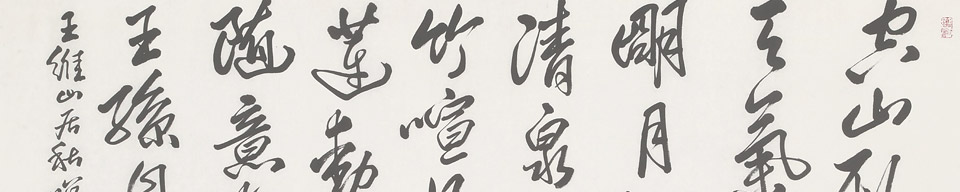 空山
天氣
朙月
清泉
竹喧
蓮動
隨意
王孫自
王維山居秋